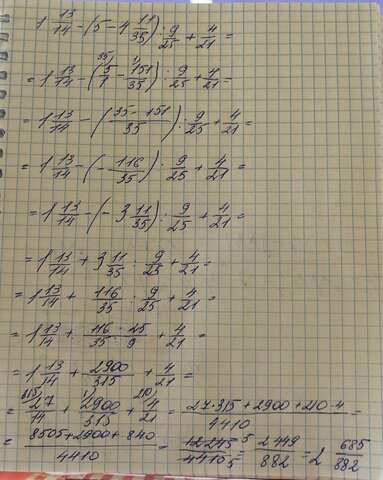 1 13/14 - (5 - 4 11/35) : 9/25 + 4/21 =
= 1 13/14 - (5/1 - 151/35) : 9/25 + 4/21 =
= 1 13/14 - (35 - 151/35) : 9/25 + 4/21 =
= 1 13/14 - (- 116/35) : 9/25 + 4/21 =
= 1 13/14 - (- 3 11/35) : 9/25 + 4/21 =
= 1 13/14 + 3 11/35 : 9/25 + 4/21 =
= 1 13/14 + 116/35 : 9/25 + 4/21 =
= 1 13/14 + 116 · 25/35 · 9 + 4/21 =
= 1 13/14 + 2900/315 + 4/21 =
= 27/14 + 2900/315 + 4/21 = 27·315 + 2900 + 210·4/4410 =
= 8505 + 2900 + 840/4410 = 12245/4410 = 2449/882 = 2 685/882